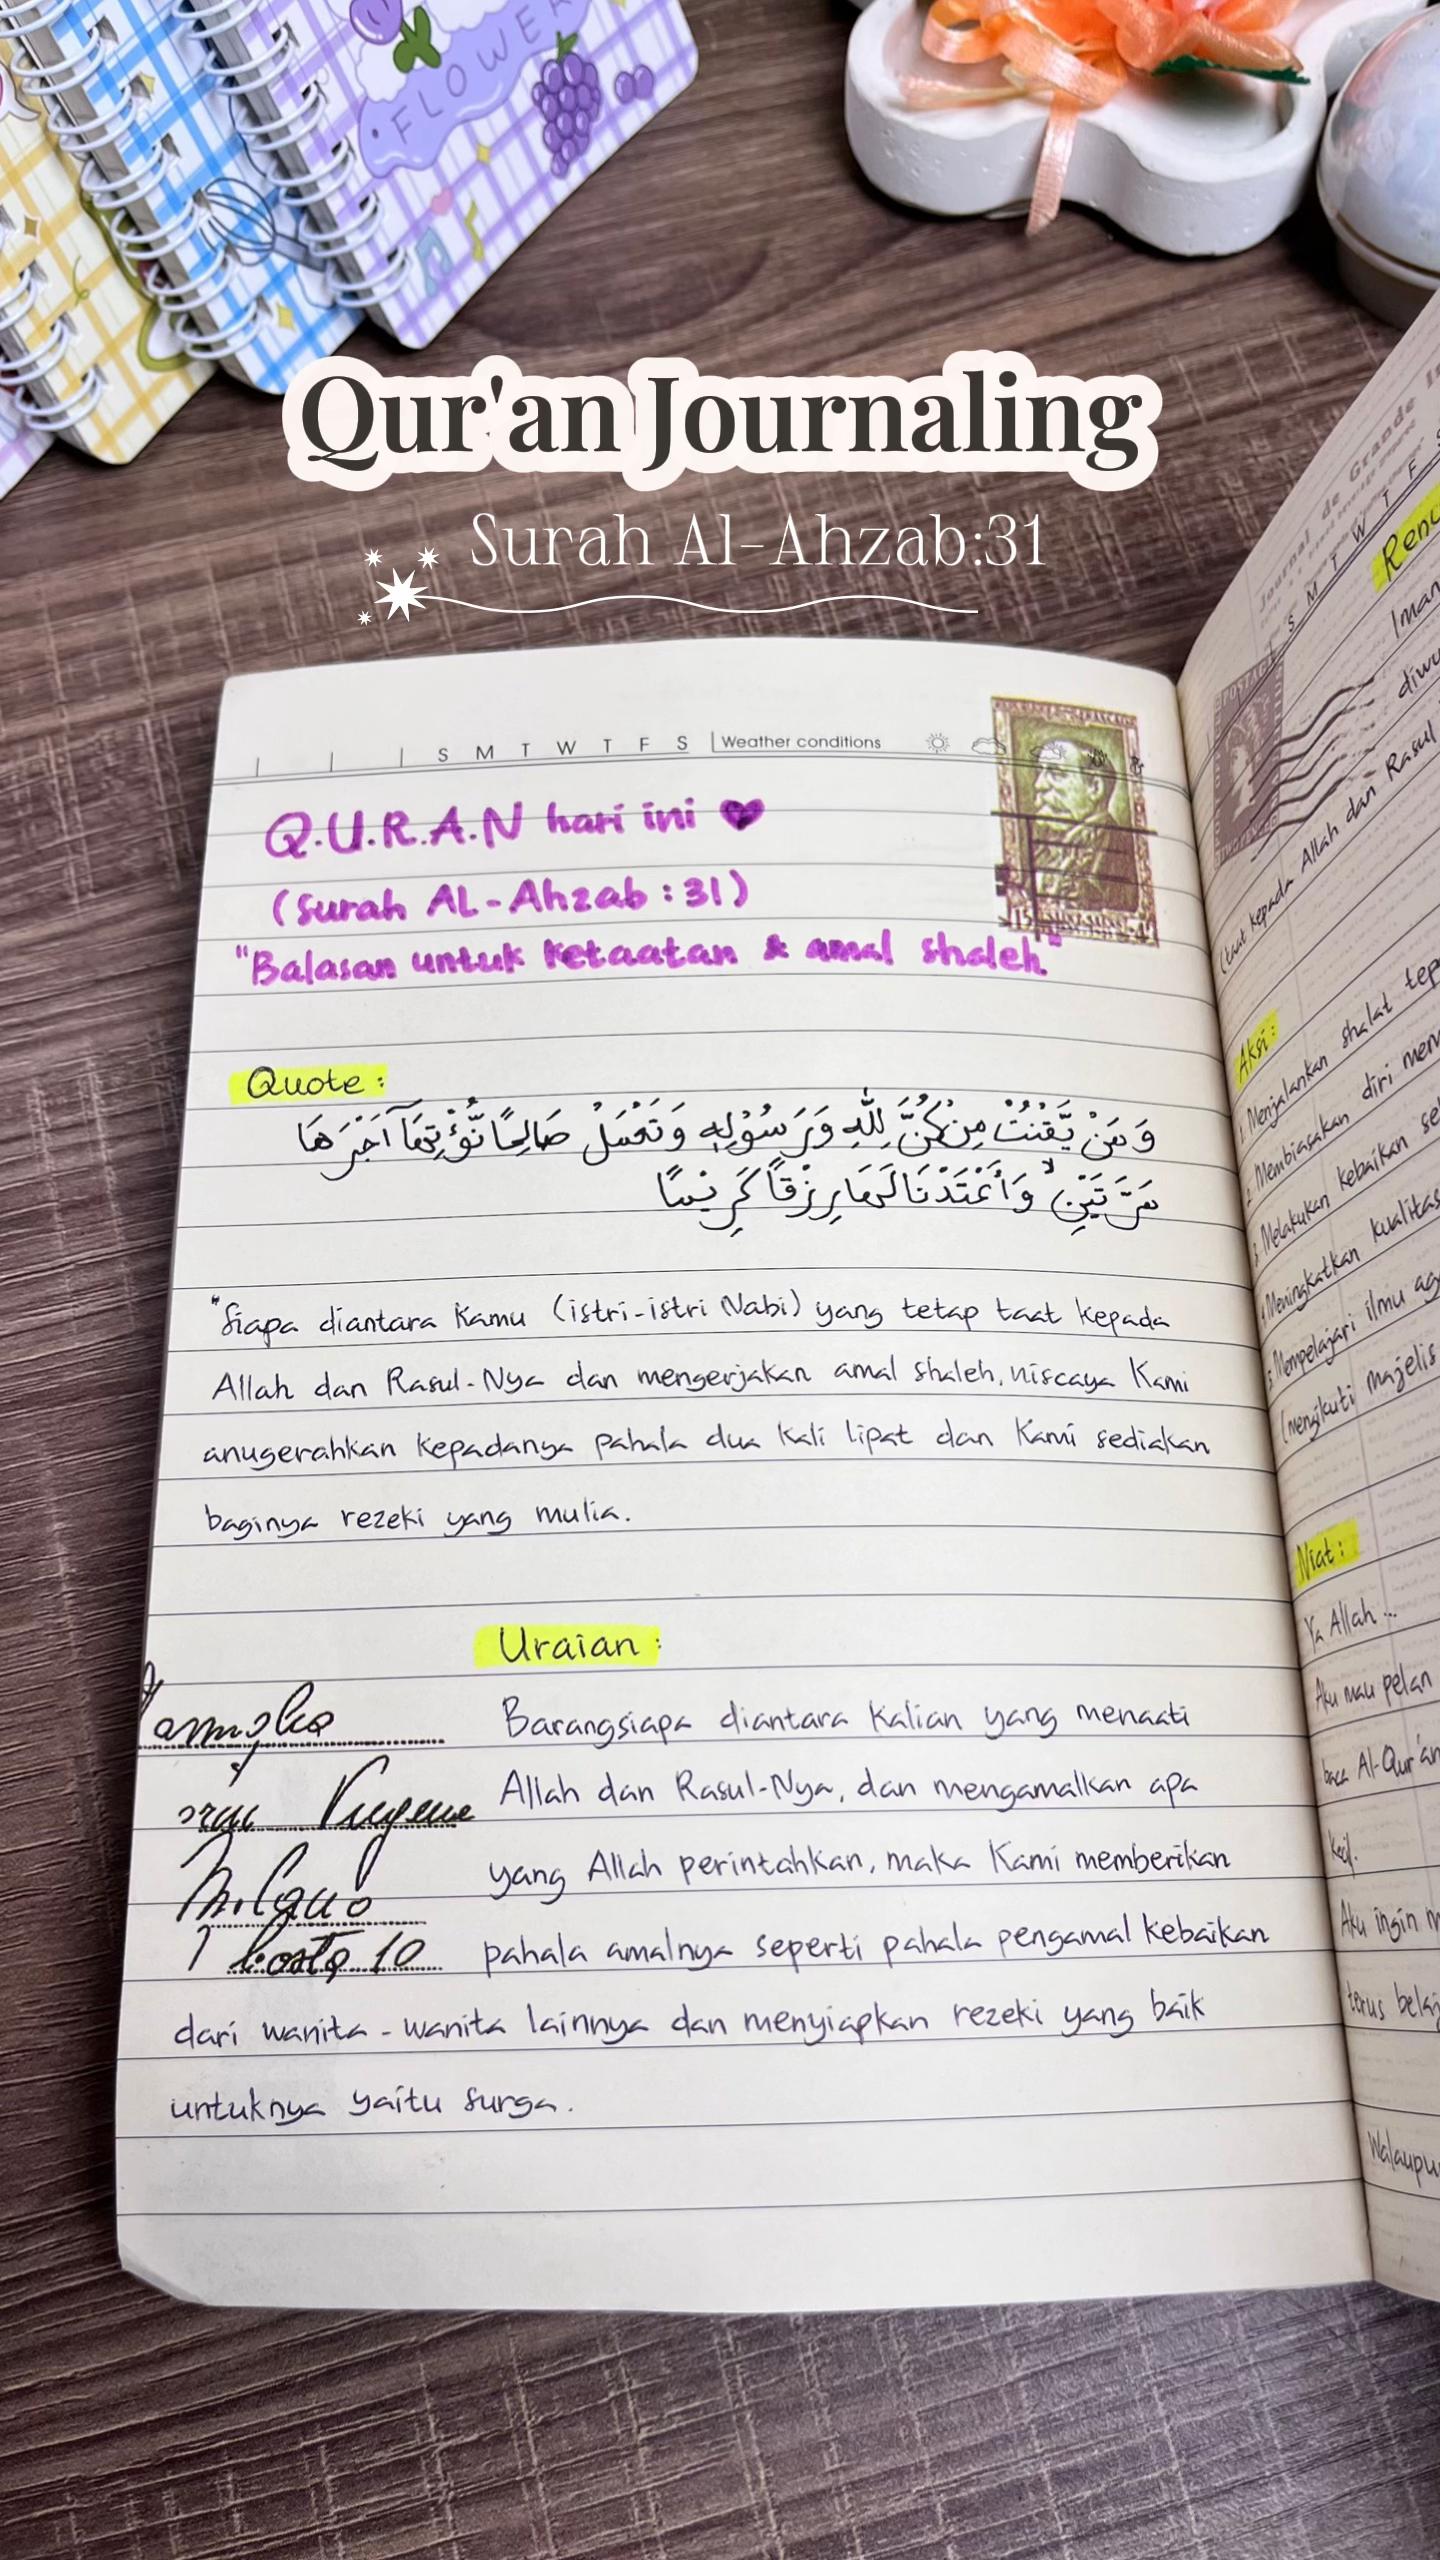 FLOWER
Qur'an Journaling
Surah Al-Ahzab:31
S M T W T F S Weather conditions
Q.U.R.A.N hari ini
(Surah AL-Ahzab:31)
"Balasan untuk ketaatan & amal shaleh"
Quote:
وَمَنْ يَّقْنُتْ مِنْكُنَّ لِلّٰهِ وَرَسُوْلِهٖ وَتَعْمَلْ صَالِحًا نُّؤْتِهَآ اَجْرَهَا
مَرَّتَيْنِۙ وَاَعْتَدْنَا لَهَا رِزْقًا كَرِيْمًا
"Siapa diantara kamu (istri-istri Nabi) yang tetap taat kepada
Allah dan Rasul-Nya dan mengerjakan amal shaleh, niscaya Kami
anugerahkan kepadanya pahala dua kali lipat dan Kami sediakan
baginya rezeki yang mulia.
Uraian:
Barangsiapa diantara kalian yang menaati
Allah dan Rasul-Nya, dan mengamalkan apa
yang Allah perintahkan, maka Kami memberikan
pahala amalnya seperti pahala pengamal kebaikan
dari wanita-wanita lainnya dan menyiapkan rezeki yang baik
untuknya yaitu surga.
Journal de Grande
S M T W T F S
POSTAGE
Iman
(taat kepada Allah dan Rasul
Aksi:
1. Menjalankan shalat
2. Membiasakan diri
3. Melakukan kebaikan
4. Meningkatkan kualitas
5. Mempelajari ilmu
(mengikuti majelis
Niat:
Ya Allah...
Aku mau pelan
baca Al-Qur'an
kecil.
Aku ingin
terus